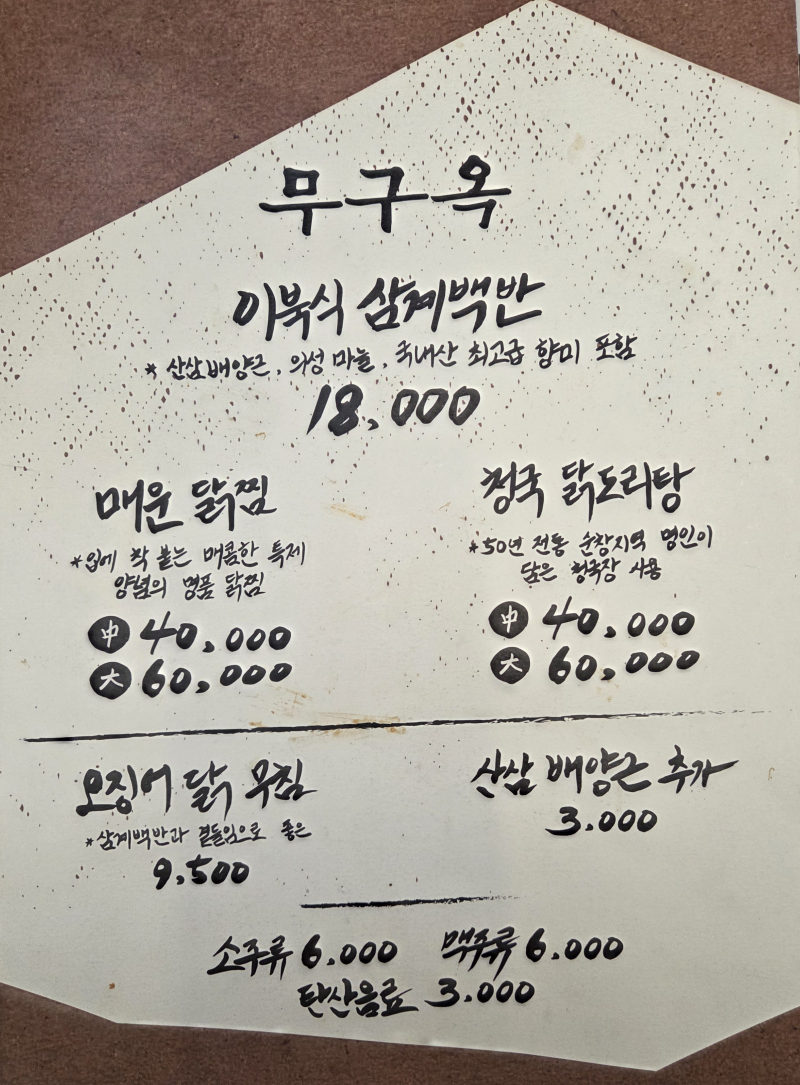 무구옥
이북식 삼계백반
* 산삼배양근, 의성 마늘, 국내산 최고급 향미 포함
18,000
매운 닭찜
*입에 착 붙는 매콤한 특제
양념의 명품 닭찜
中 40,000
大 60,000
청국 닭도리탕
*50년 전통 순창지역 명인이
담은 청국장 사용
中 40,000
大 60,000
오징어 닭 무침
*삼계백반과 곁들임으로 좋은
9,500
산삼 배양근 추가
3.000
소주류 6.000 맥주류 6.000
탄산음료 3.000